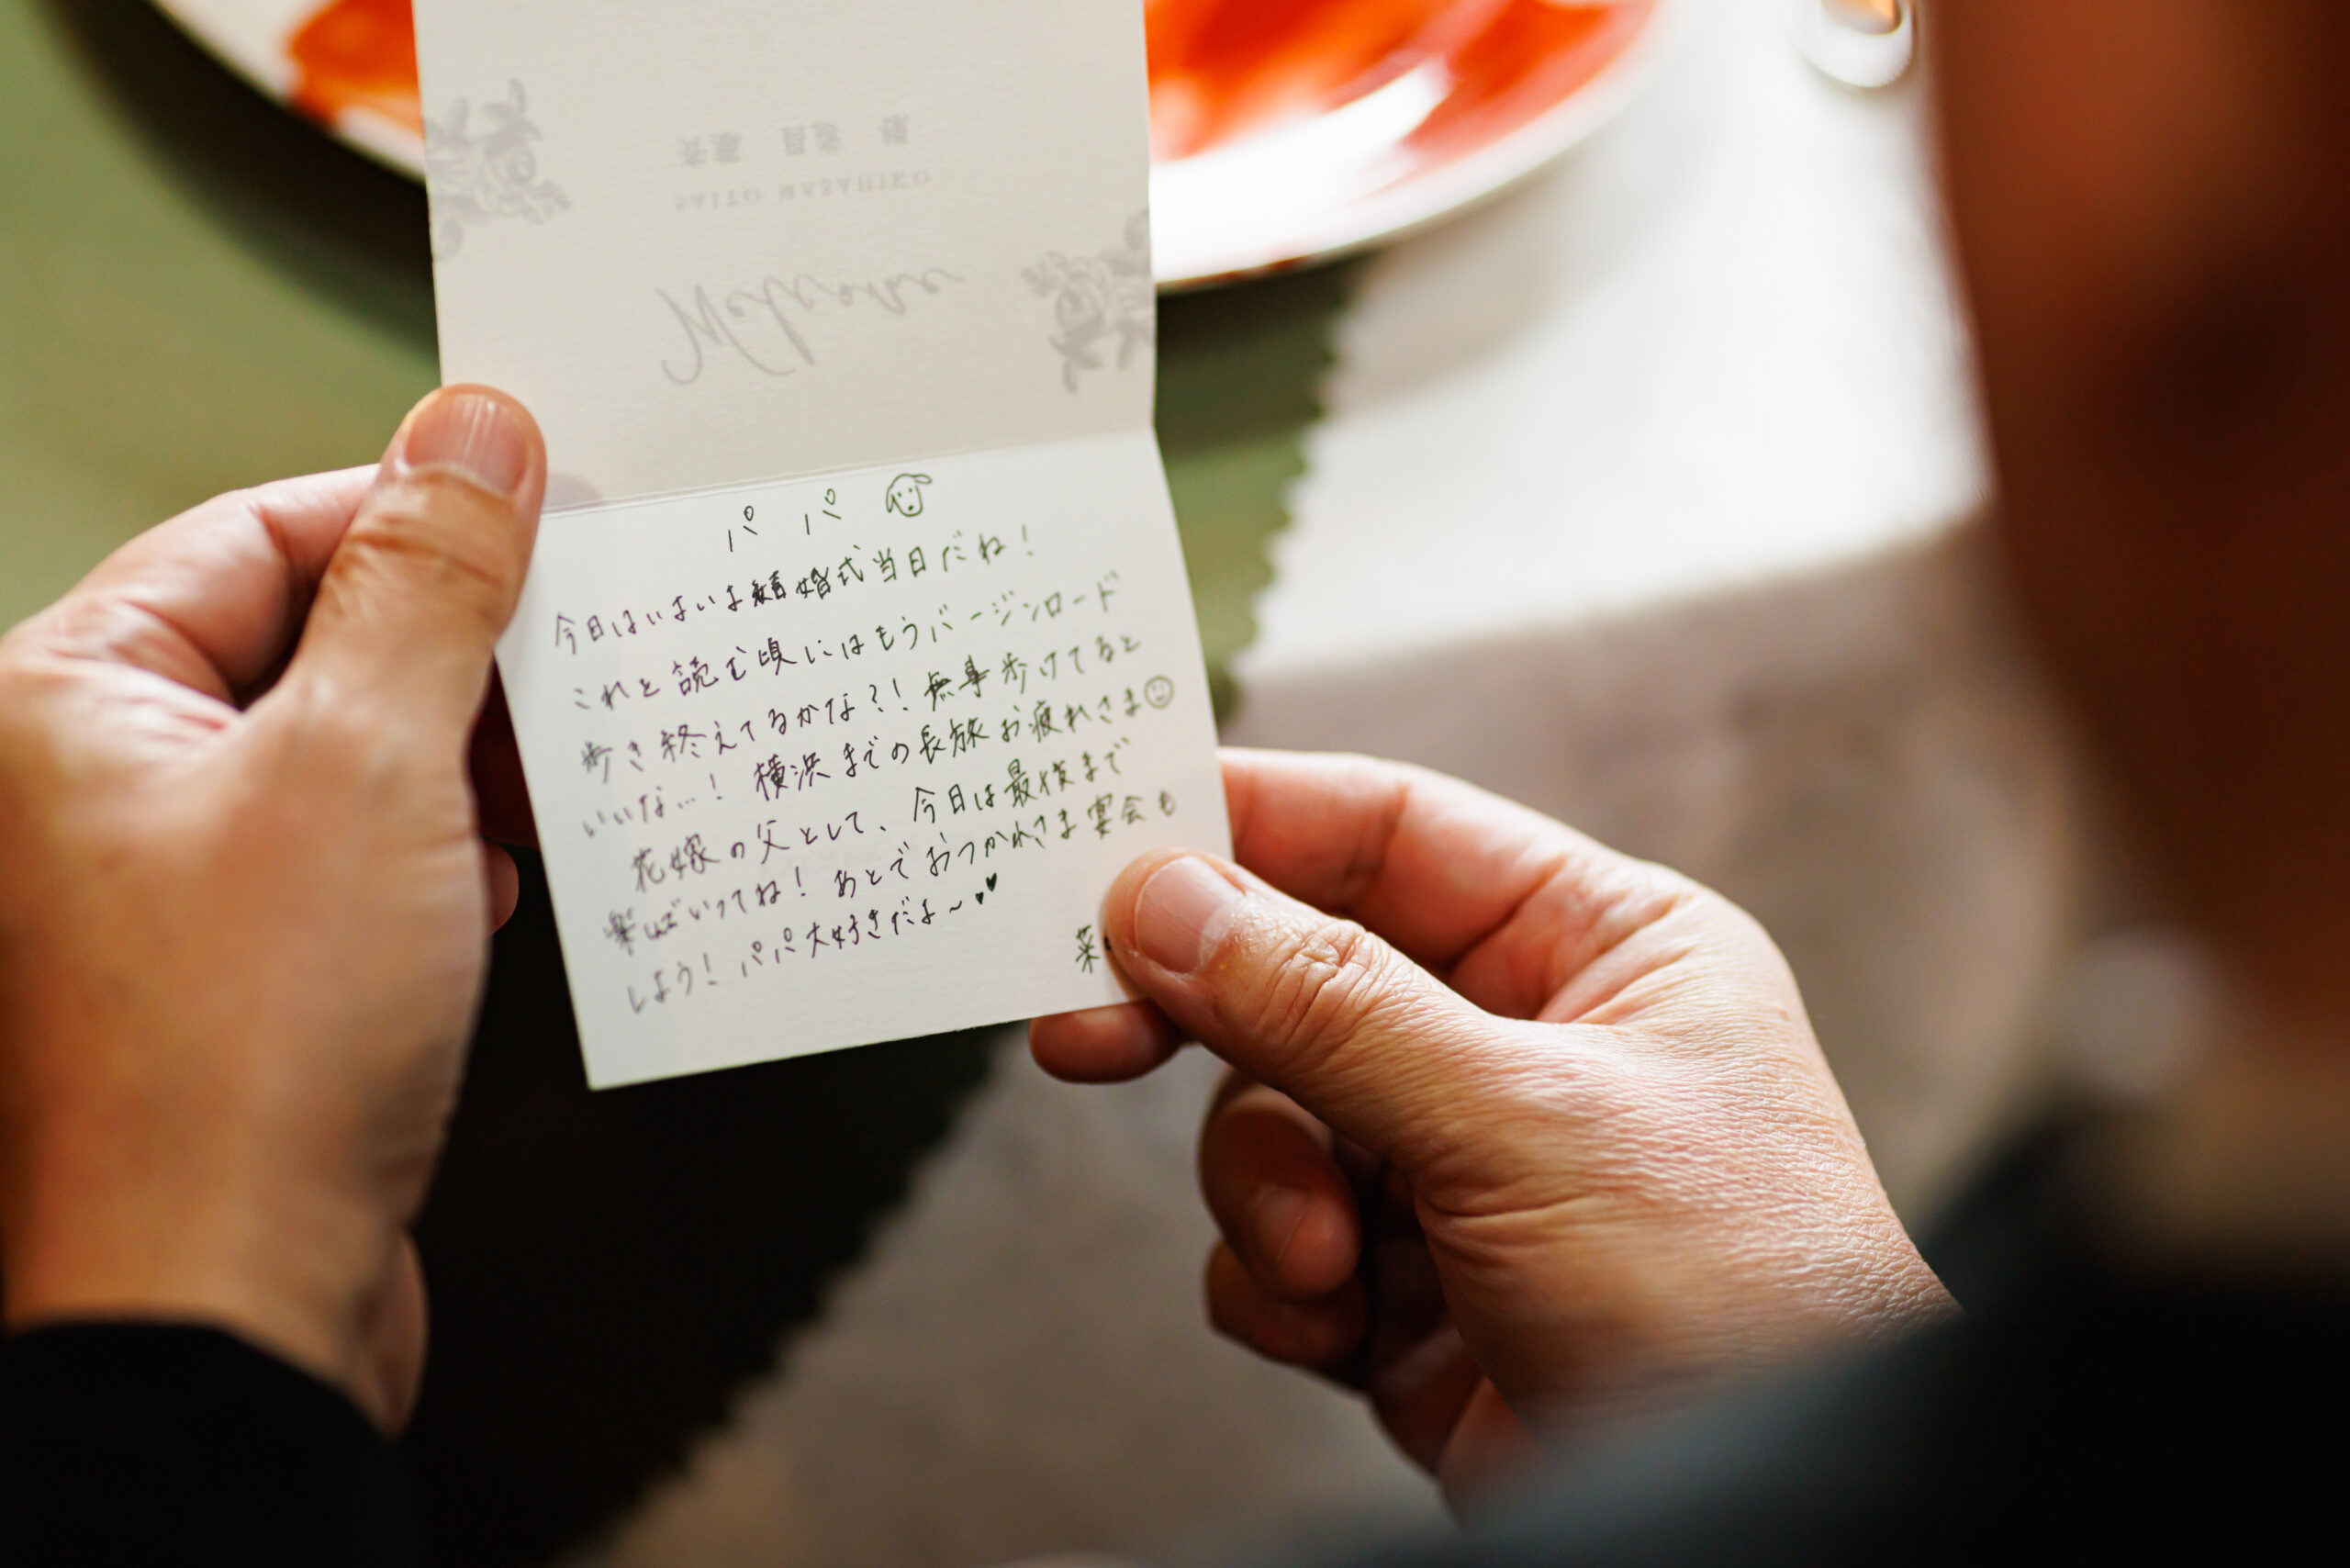 Welcome
SAITO MASAHIKO
パパ
今日はいよいよ結婚式当日だね!
これを読む頃にはもうバージンロード
歩き終えてるかな?! 無事歩けてると
いいな…! 横浜までの長旅お疲れさま
花嫁の父として、今日は最後まで
楽しんでいってね! あとでおつかれさま宴会も
しよう! パパ大好きだよ~
菜